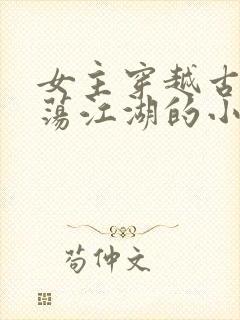 女主穿越古
荡江湖的小
苟仲文